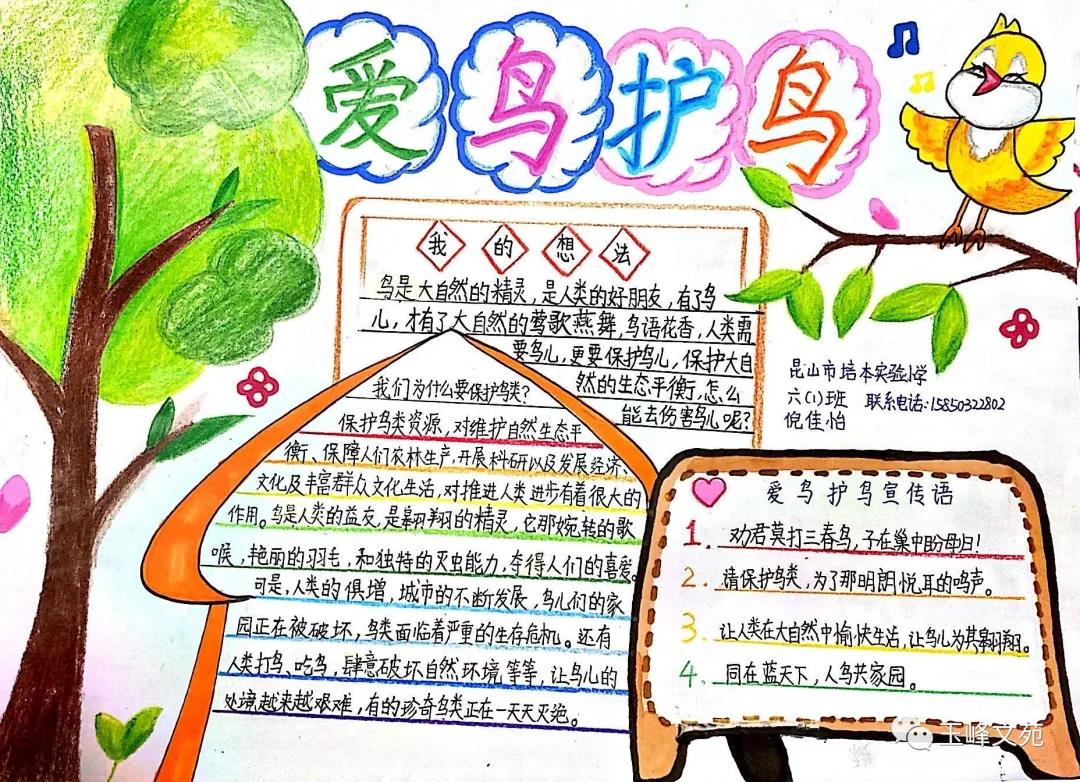 爱鸟护鸟
我的想法
鸟是大自然的精灵，是人类的好朋友，有了鸟
儿，才有了大自然的莺歌燕舞，鸟语花香，人类需
要鸟儿，更要保护鸟儿，保护大自
然的生态平衡，怎么
能去伤害鸟儿呢？
我们为什么要保护鸟类？
保护鸟类资源，对维护自然生态平
衡、保障人们农林生产，开展科研以及发展经济、
文化及丰富群众文化生活，对推进人类进步有着很大的
作用。鸟是人类的益友，是翱翔的精灵，它那婉转的歌
喉，艳丽的羽毛，和独特的灭虫能力，夺得人们的喜爱。
可是，人类的俱增，城市的不断发展，鸟儿们的家
园正在被破坏，鸟类面临着严重的生存危机。还有
人类打鸟、吃鸟，肆意破坏自然环境等等，让鸟儿的
处境越来越艰难，有的珍奇鸟类正在一天天灭绝。
昆山市培本实验小学
六(1)班 联系电话:15850322802
倪佳怡
爱鸟护鸟宣传语
1. 劝君莫打三春鸟，子在巢中盼母归！
2. 请保护鸟类，为了那明朗悦耳的鸣声。
3. 让人类在大自然中愉快生活，让鸟儿为其翱翔。
4. 同在蓝天下，人鸟共家园。
玉峰文苑